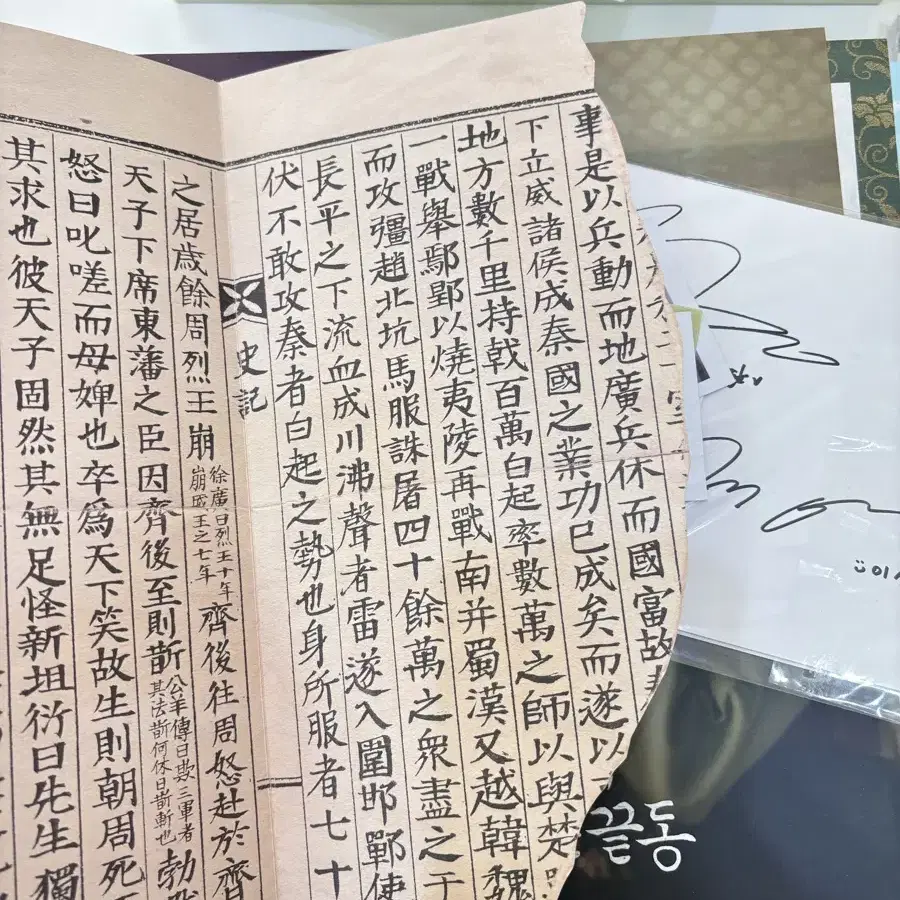 事是以兵動而地廣兵休而國富故
下立威諸侯成秦國之業功已成矣而遂以
地方數千里持戟百萬白起率數萬之師以與楚
一戰舉鄢郢以燒夷陵再戰南并蜀漢又越韓魏
而攻彊趙北坑馬服誅屠四十餘萬之衆盡之于
長平之下流血成川沸聲者雷遂入圍邯鄲使
伏不敢攻秦者白起之勢也身所服者七十
史記
之居歲餘周烈王崩徐廣曰烈王十年崩威王之七年齊後往周怒赴於齊
天子下席東藩之臣因齊後至則斮公羊傳曰欺三軍者其法斮何休曰斮斬也勃
怒曰叱嗟而母婢也卒爲天下笑故生則朝周死
其求也彼天子固然其無足怪新垣衍曰先生獨
끝동